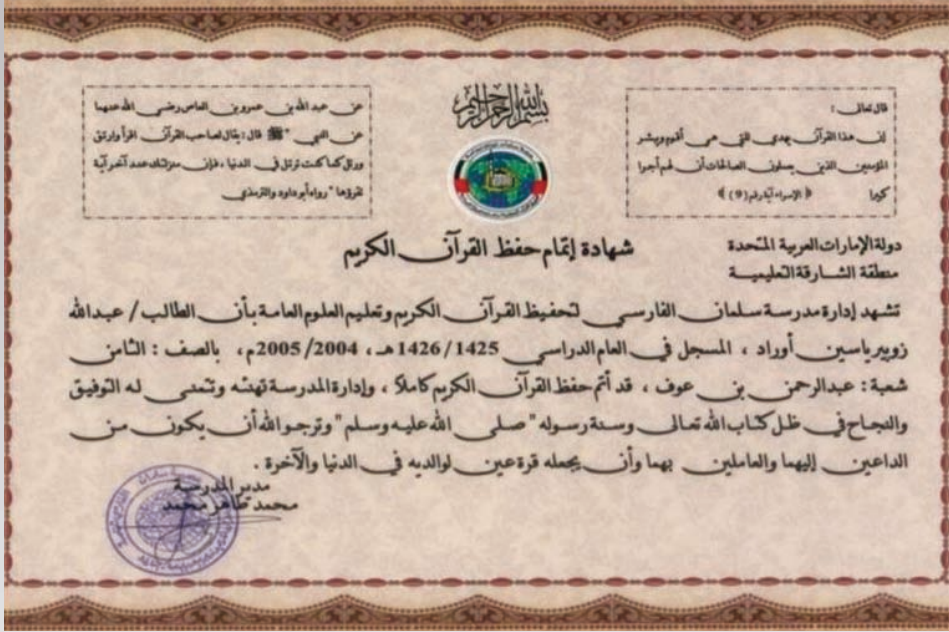 بسم الله الرحمن الرحيم
قال تعالى :
إن هذا القرآن يهدي للتي هي أقوم ويبشر
المؤمنين الذين يعملون الصالحات أن لهم أجرا
كبيرا ﴿ الإسراء آية رقم (9) ﴾
عن عبد الله بن عمرو بن العاص رضي الله عنهما
عن النبي "ﷺ قال : يقال لصاحب القرآن اقرأ وارتق
ورتل كما كنت ترتل في الدنيا ، فإن منزلتك عند آخر آية
تقرؤها " رواه أبو داود والترمذي
دولة الإمارات العربية المتحدة
منطقة الشارقة التعليمية
شهادة إتمام حفظ القرآن الكريم
تشهد إدارة مدرسة سلمان الفارسي لتحفيظ القرآن الكريم وتعليم العلوم العامة بأن الطالب / عبدالله
زوبير ياسين أوراد ، المسجل في العام الدراسي 1425 / 1426 هـ ، 2004 / 2005 م ، بالصف : الثامن
شعبة : عبدالرحمن بن عوف ، قد أتم حفظ القرآن الكريم كاملاً ، وإدارة المدرسة تهنئه وتتمنى له التوفيق
والنجاح في ظل كتاب الله تعالى وسنة رسوله " صلى الله عليه وسلم " وترجو الله أن يكون من
الداعين إليهما والعاملين بهما وأن يجعله قرة عين لوالديه في الدنيا والآخرة .
مدير المدرسة
محمد طاهر محمد